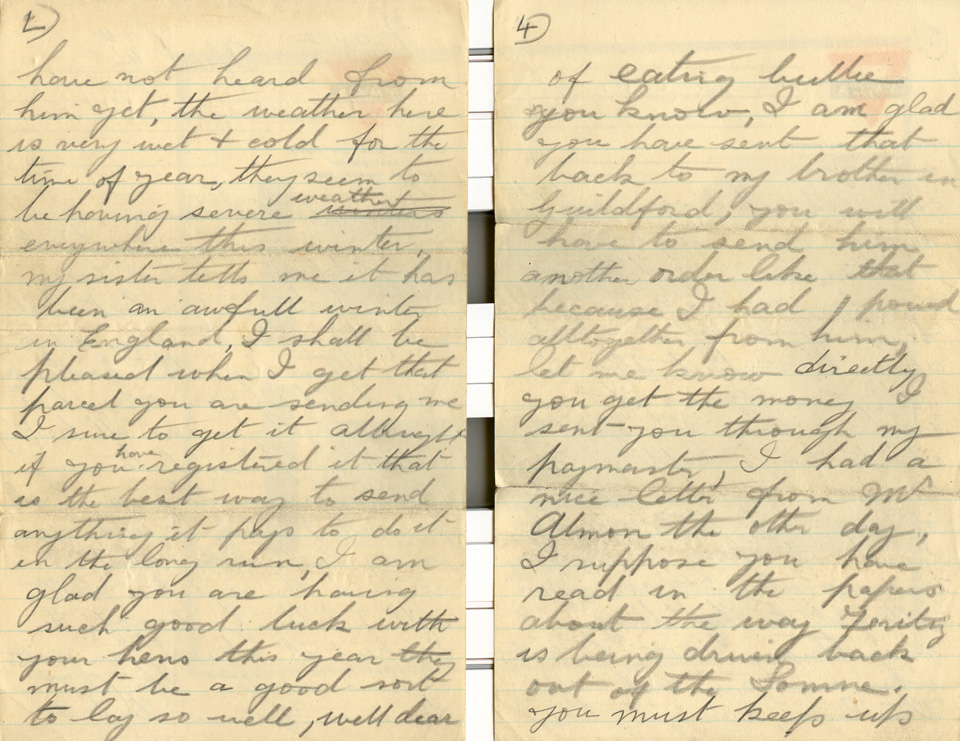 2)
have not heard from
him yet, the weather here
is very wet & cold for the
time of year, they seem to
be having severe weather winters
everywhere this winter,
my sister tells me it has
been an awfull winter
in England, I shall be
pleased when I get that
parcel you are sending me
I sure to get it allright
if you have registered it that
is the best way to send
anything it pays to do it
in the long run, I am
glad you are having
such good luck with
your hens this year they
must be a good sort
to lay so well, well dear
4)
of eating bullie
you know, I am glad
you have sent that
back to my brother in
Guildford, you will
have to send him
another order like that
because I had 1 pound
alltogether from him,
let me know directly
you get the money I
sent you through my
paymaster, I had a
nice letter from Mr
Almon the other day,
I suppose you have
read in the papers
about the way Feritz
is being driven back
out of the Somme.
you must keep up